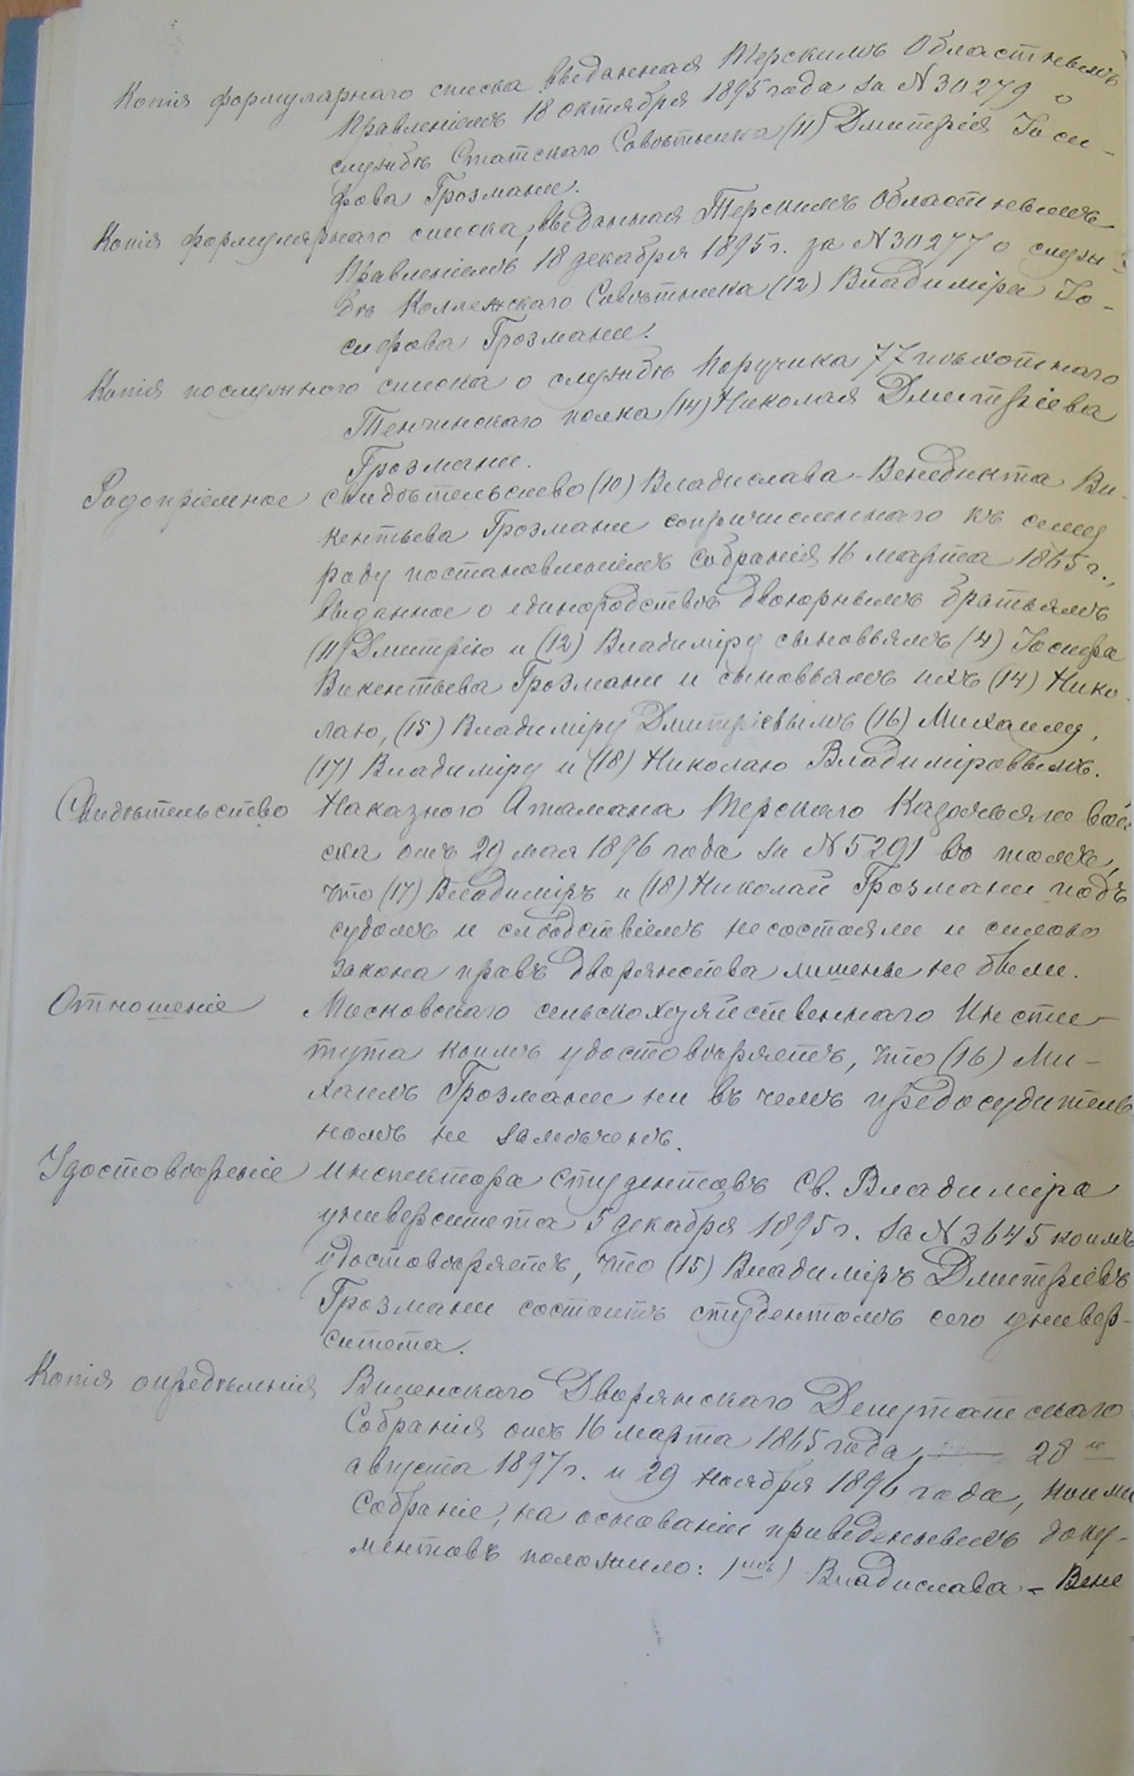 Копія формулярнаго списка выданная Терскимъ Областнымъ
Правленіемъ 18 октября 1895 года за № 30279 о
службѣ Статскаго Совѣтника (11) Дмитрія Іоси-
фова Грозмани.
Копія формулярнаго списка, выданная Терскимъ Областнымъ
Правленіемъ 18 декабря 1895 г. за № 30277 о служ-
бѣ Коллежскаго Совѣтника (12) Владиміра Іо-
сифова Грозмани.
Копія послужного списка о службѣ Поручика 77 пѣхотнаго
Тенгинскаго полка (14) Николая Дмитріева
Грозмани.
Родопріемное свидѣтельство (10) Владислава-Венедикта Ви-
кентьева Грозмани сопричисленнаго къ сему
роду постановленіемъ Собранія 16 марта 1865 г.,
выданное о единородствѣ двоюрнымъ братьямъ
(11) Дмитрію и (12) Владиміру сыновьямъ (4) Іосифа
Викентьева Грозмани и сыновьямъ ихъ (14) Нико-
лаю, (15) Владиміру Дмитріевымъ (16) Михаилу,
(17) Владиміру и (18) Николаю Владиміровымъ.
Свидѣтельство Наказного Атамана Терскаго Казачьяго вой-
ска отъ 29 мая 1896 года за № 5291 въ томъ,
что (17) Владиміръ и (18) Николай Грозмани подъ
судомъ и слѣдствіемъ не состояли и силою
закона правъ дворянства лишены не были.
Отношеніе Московскаго сельскохозяйственнаго Инсти-
тута коимъ удостовѣряетъ, что (16) Ми-
хаилъ Грозмани ни въ чемъ предосудитель
номъ не замѣченъ.
Удостовѣреніе инспектора студентовъ Св. Владиміра
университета 5 декабря 1895 г. за № 3645 коимъ
удостовѣряетъ, что (15) Владиміръ Дмитріевъ
Грозмани состоитъ студентомъ сего универ-
ситета.
Копія опредѣленія Виленскаго Дворянскаго Депутатскаго
Собранія отъ 16 марта 1865 года, 28
августа 1897 г. и 29 ноября 1896 года, коими
Собраніе, на основаніи приведенныхъ доку-
ментовъ положило: 1мъ) Владислава-Вене